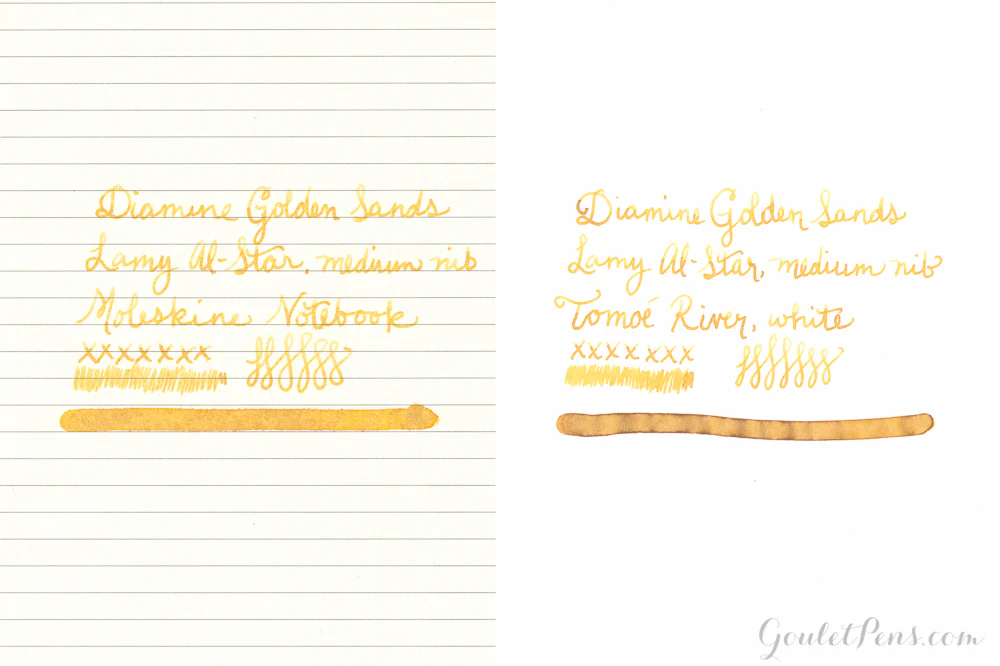 Diamine Golden Sands
Lamy Al-Star, medium nib
Moleskine Notebook
xxxxxxx
Diamine Golden Sands
Lamy Al-Star, medium nib
Tomoé River, white
xxxxxxx
GouletPens.com